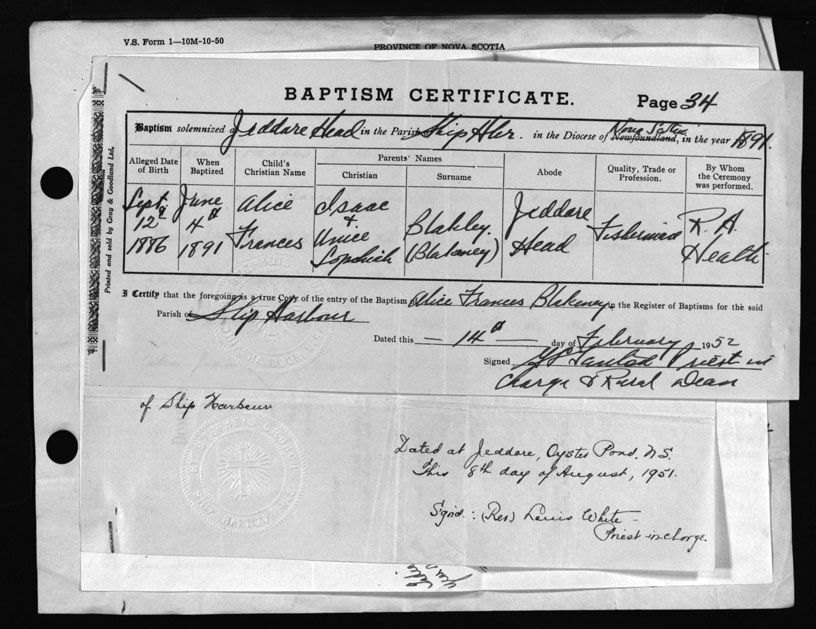 V.S. Form 1—10M-10-50
PROVINCE OF NOVA SCOTIA
BAPTISM CERTIFICATE. Page 34
Baptism solemnized a Jeddore Head in the Parish Ship Hbr. in the Diocese of Newfoundland, Nova Scotia in the year 1891.
Alleged Date of Birth When Baptized Child's Christian Name Parents' Names Abode Quality, Trade or Profession. By Whom the Ceremony was performed.
Christian Surname
Sept. June Alice Isaac Jeddore R. A.
12 4 & Blakley Fisherman
1886 1891 Frances Unice (Blakeney) Head Heath
Sophiah
I Certify that the foregoing is a true Copy of the entry of the Baptism Alice Frances Blakeney in the Register of Baptisms for the said
Parish of Ship Harbour
Dated this — 14th — day of February 1952
Signed Priest in
Charge & Rural Dean
Printed and sold by Gray & Goodland Ltd.
of Ship Harbour
Dated at Jeddore, Oyster Pond. N.S.
This 8th day of August, 1951.
Sgnd.: (Rev) Lewis White -
Priest-in-charge.